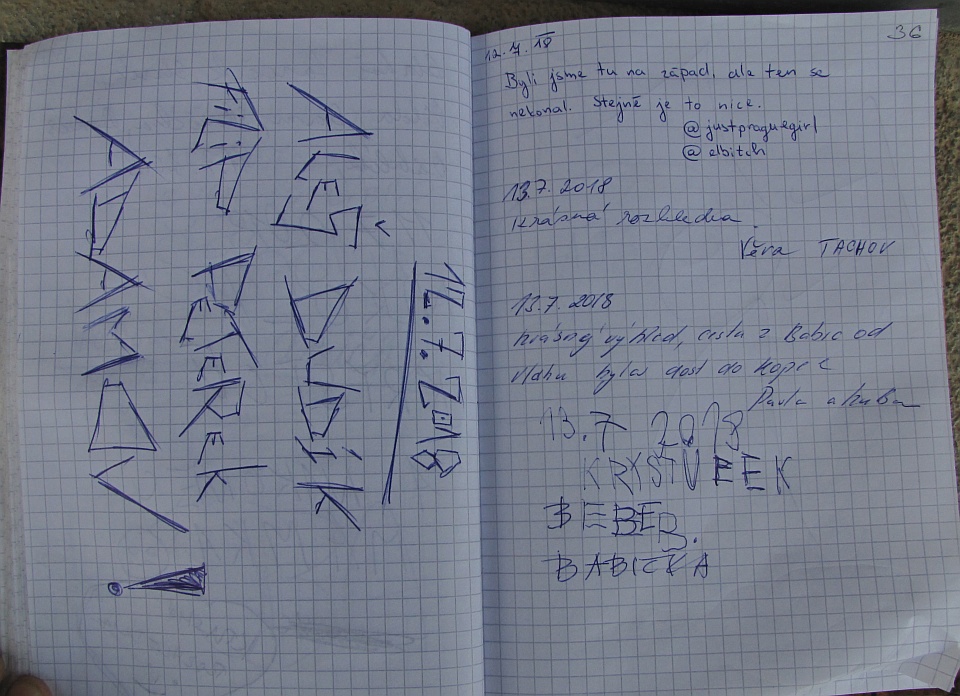 12.7.2018
ALEŠ DUDÍK
FILIP
ADAMOV
!
36
12.7.18
Byli jsme tu na západ, ale ten se
nekonal. Stejně je to nice.
@justpraguegirl
@elbitch
13.7.2018
Krásná rozhledna.
Věra TACHOV
13.7.2018
Krásný výhled, cesta z Babic od
vlaku byla dost do kopce
Pavla a Kuba
13.7 2018
BABIČKA